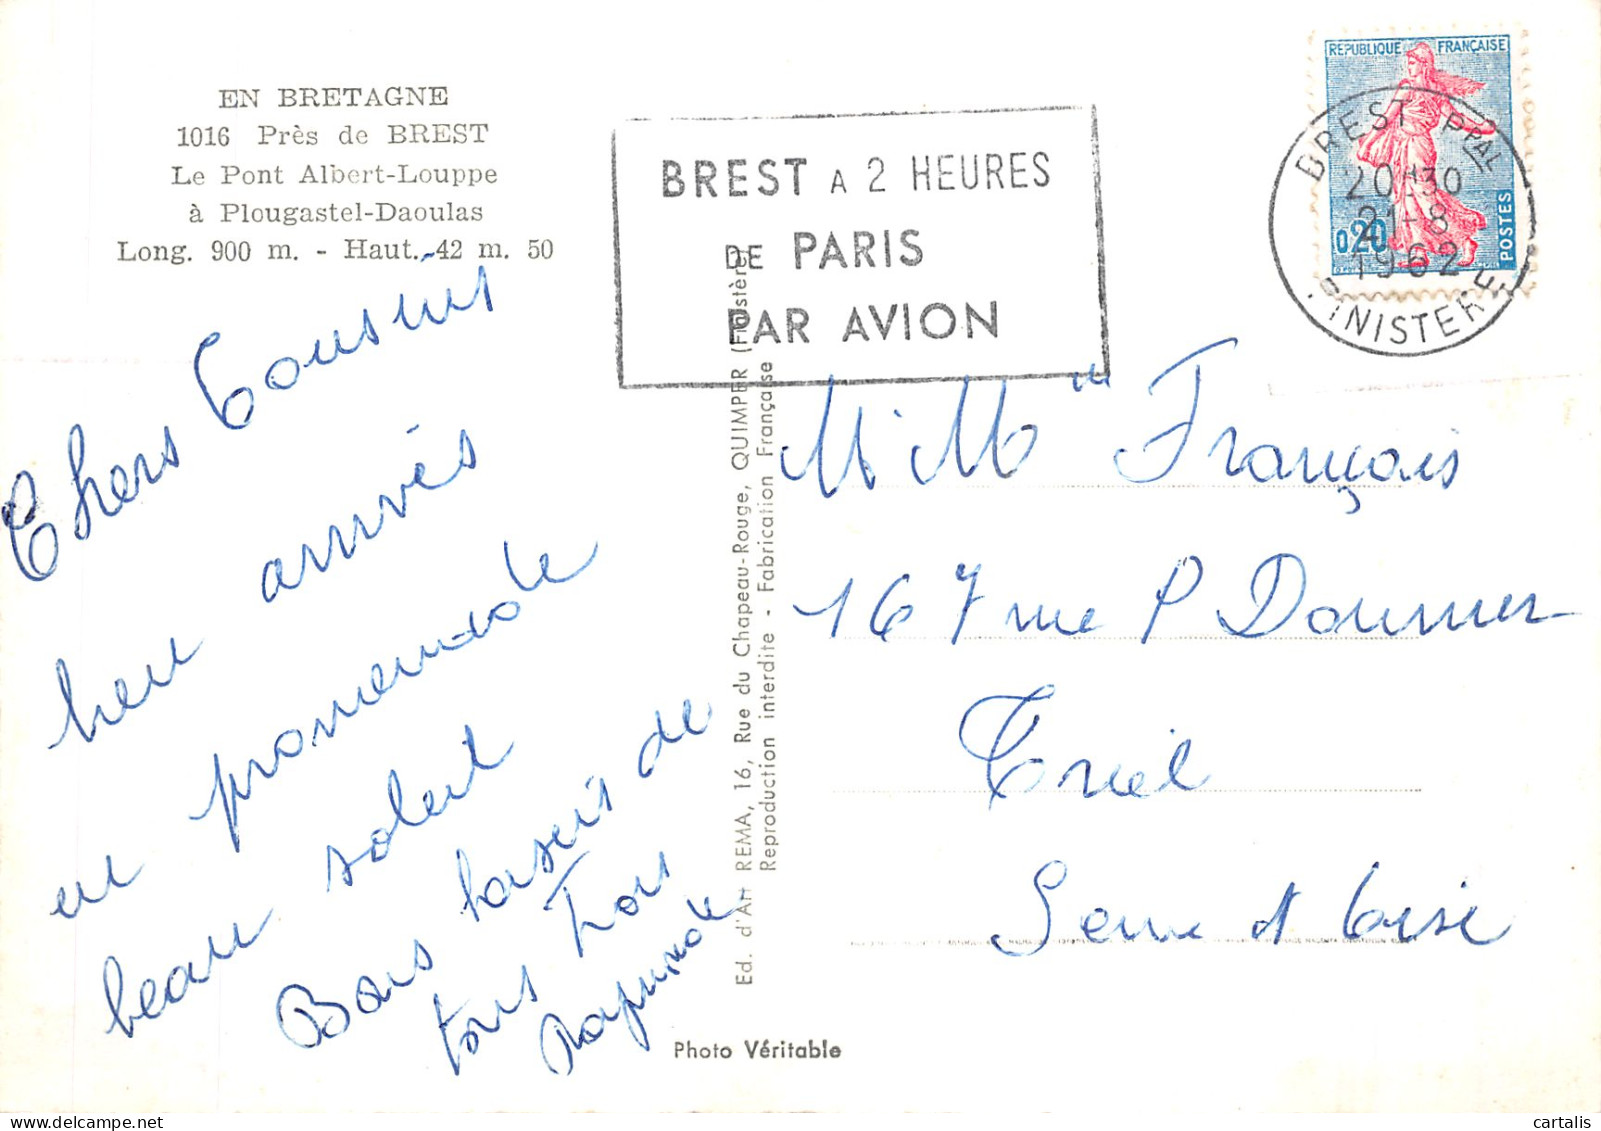 EN BRETAGNE
1016 Près de BREST
Le Pont Albert-Louppe
à Plougastel-Daoulas
Long. 900 m. - Haut. 42 m. 50
Chers Cousins
bien arrivés
en promenade
beau soleil
Bons baisers de
tous Trois
Raymonde
BREST A 2 HEURES
DE PARIS
PAR AVION
REPUBLIQUE FRANÇAISE
0,20
POSTES
BREST PPAL
20H30
21-8
1962
FINISTERE
M. Mme François
167 rue P Doumer
Triel
Seine et Oise
Ed. d'Art REMA, 16, Rue du Chapeau-Rouge, QUIMPER (Finistère)
Reproduction interdite - Fabrication Française
Photo Véritable
cartalis